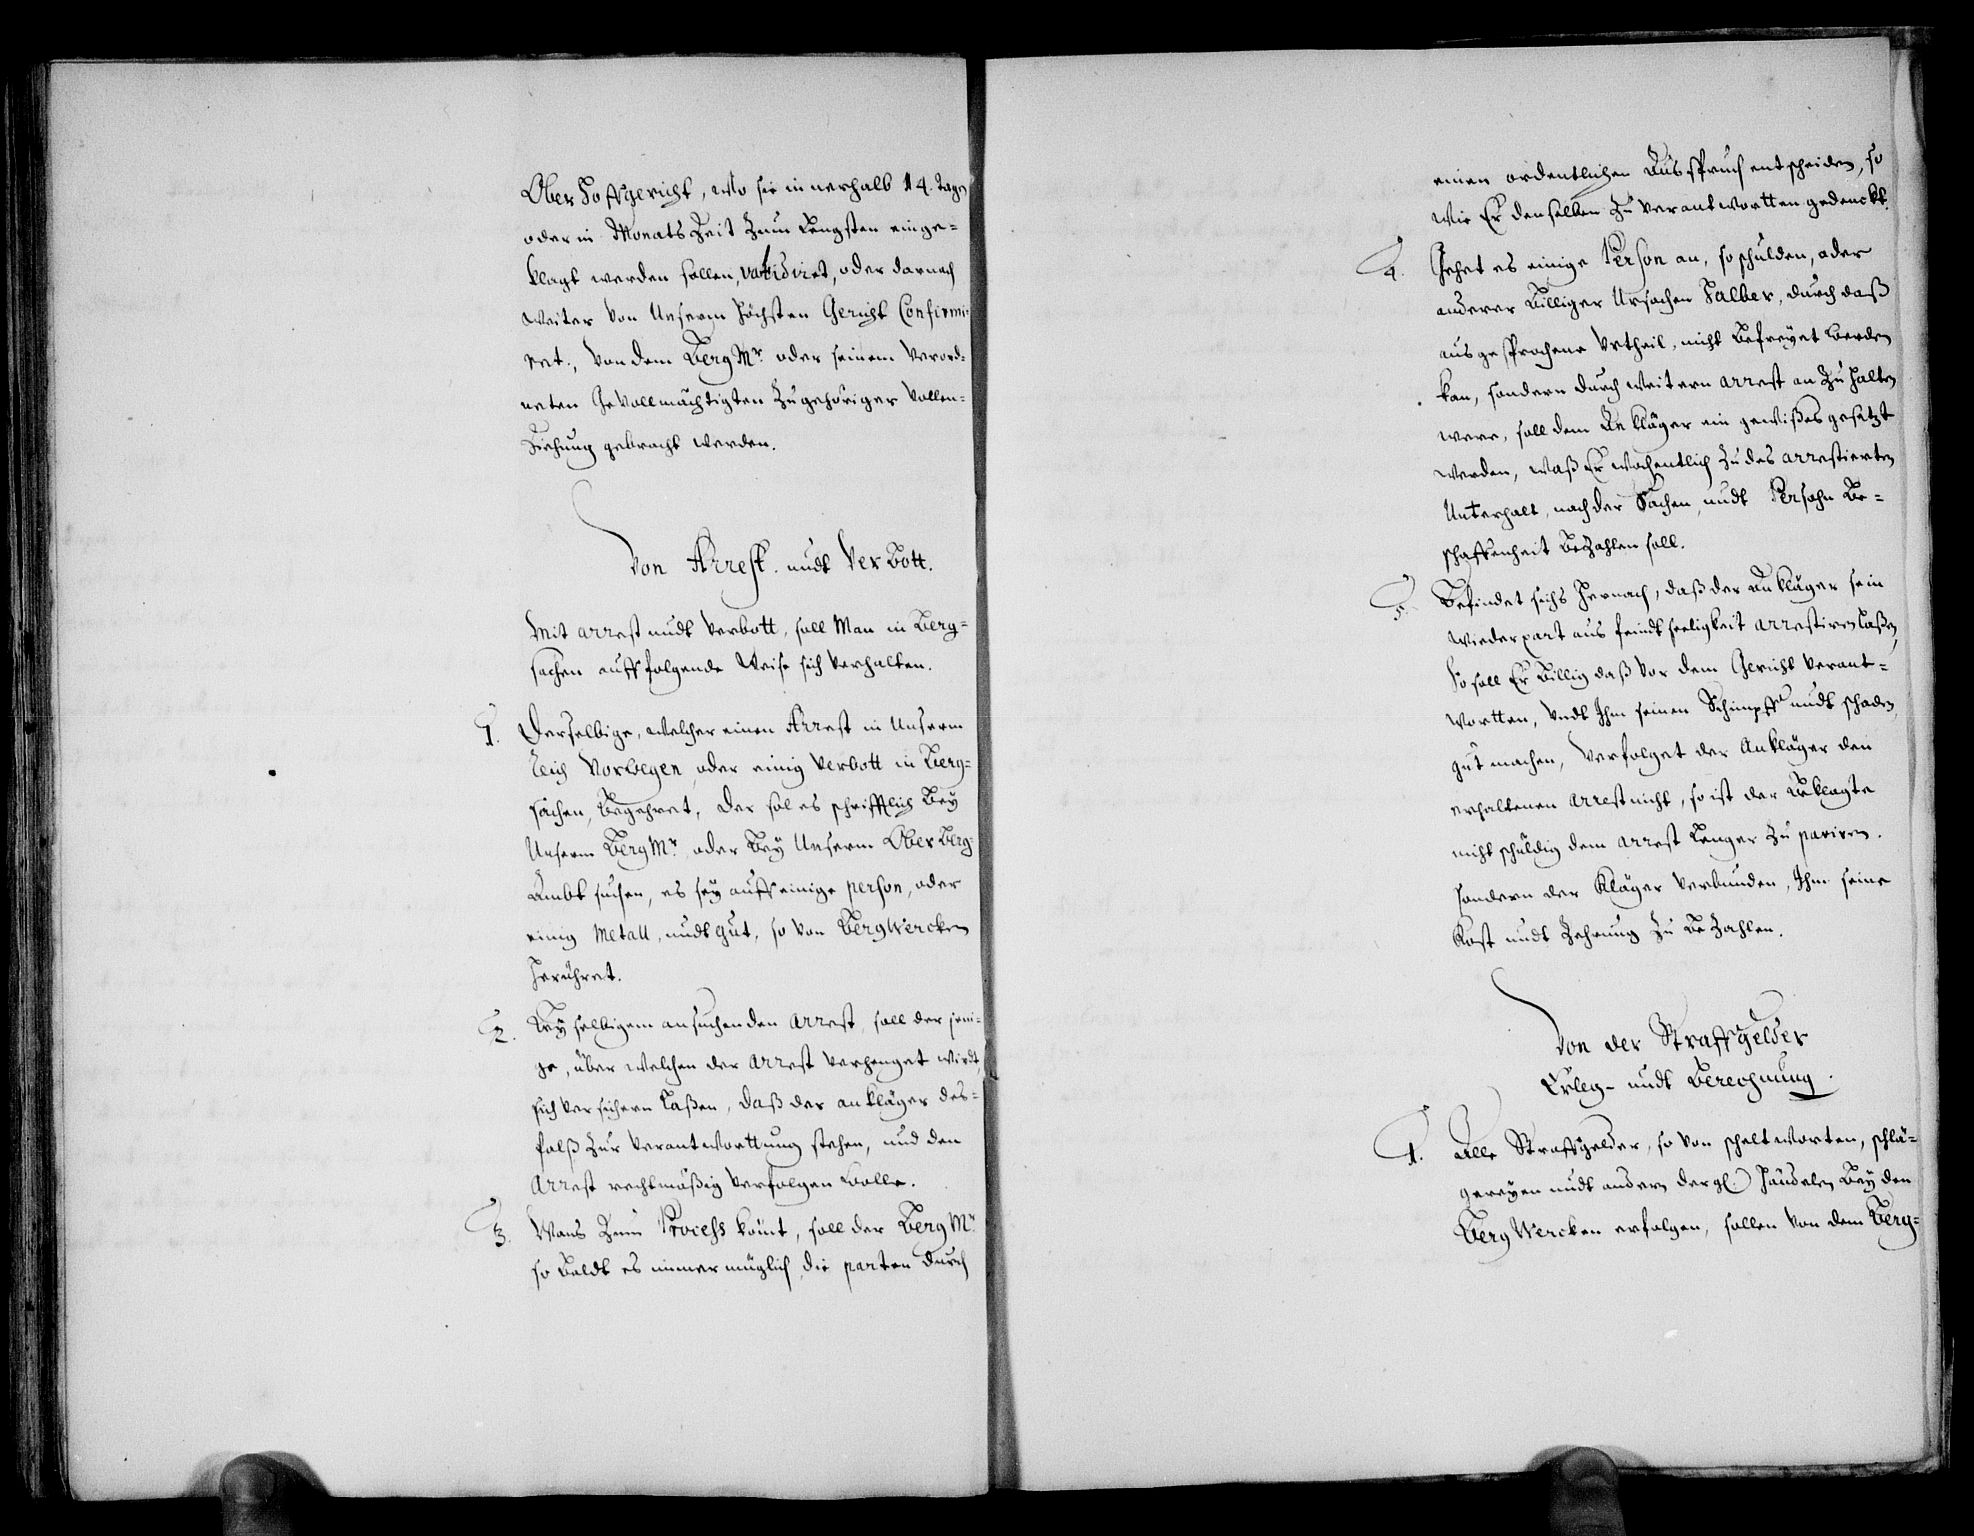 Ober Hoffgericht, wo sie innerhalb 14. Tagen
oder in Monats Zeit Zum Lengsten einge=
klagt werden sollen, validiret, oder darnach
weiter von Unserm Höchsten Gericht Confirmi=
ret, von dem BergMr. oder seinem verord=
neten Gevollmächtigten Zugehöriger vollen=
Ziehung gebracht werden.
Von Arrest. undt VerBott.
Mit arrest undt verbott, soll Man in Berg=
sachen auff folgende Weise sich verhalten.
1. Derselbige, welcher einen Arrest in Unserm
Reich Norwegen, oder einig verbott in Berg=
sachen, Begehret, der sol es schrifftlich Bey
Unserm BergMr. oder Bey Unserm Ober Berg
Ambt suchen, es sey auff einige person, oder
einig Metall, undt gut, so von BergWercken
Herrühret.
2. Bey selbigem ansuchenden arrest, soll der jeni=
ge, über welchen der arrest verhenget wirdt,
sich versichern Laßen, daß der ankläger des=
falß Zur verantworttung stehen, und den
Arrest rechtmäßig verfolgen wolle.
3. Wans Zum Process komt, soll der BergMr.
so Baldt es immer müglich, die parten durch
einen ordentlichen Ausspruch entscheiden, so
wie Er denselben Zu verantwortten gedenckt.
4. Gehet es einige Person an, so schulden, oder
anderer Billiger Ursachen Halber, durch daß
ausgesprochene Urtheil, nicht Befreyet werden
kan, sondern durch weitern arrest an Zu halten
were, soll dem Ankläger ein gewißes gesetzt
werden, waß Er wochentlich Zu des arrestierten
Unterhalt, nach der Sachen, undt Persohn Be=
schaffenheit BeZahlen soll.
5. Befindet sichs Hernach, daß der Ankläger sein
Wiederpart aus feindtseeligkeit arrestiren laßen,
So soll Er Billig daß vor dem Gericht verant=
wortten, Undt Ihm seinen Schimpff undt schaden,
gut machen, Verfolget der Ankläger den
erhaltenen arrest nicht, so ist der Beklagte
nicht schuldig dem arrest Lenger Zu pariren.
sondern der Kläger verbunden, Ihm seine
Kost undt Zehrung Zu BeZahlen.
Von der Straffgelder
Erleg- undt Berechnung.
1. Alle Straffgelder, so von scheltworten, schlä=
gereyen undt andern dergl. Händelen Bey den
BergWercken erfolgen, sollen von dem Berg=